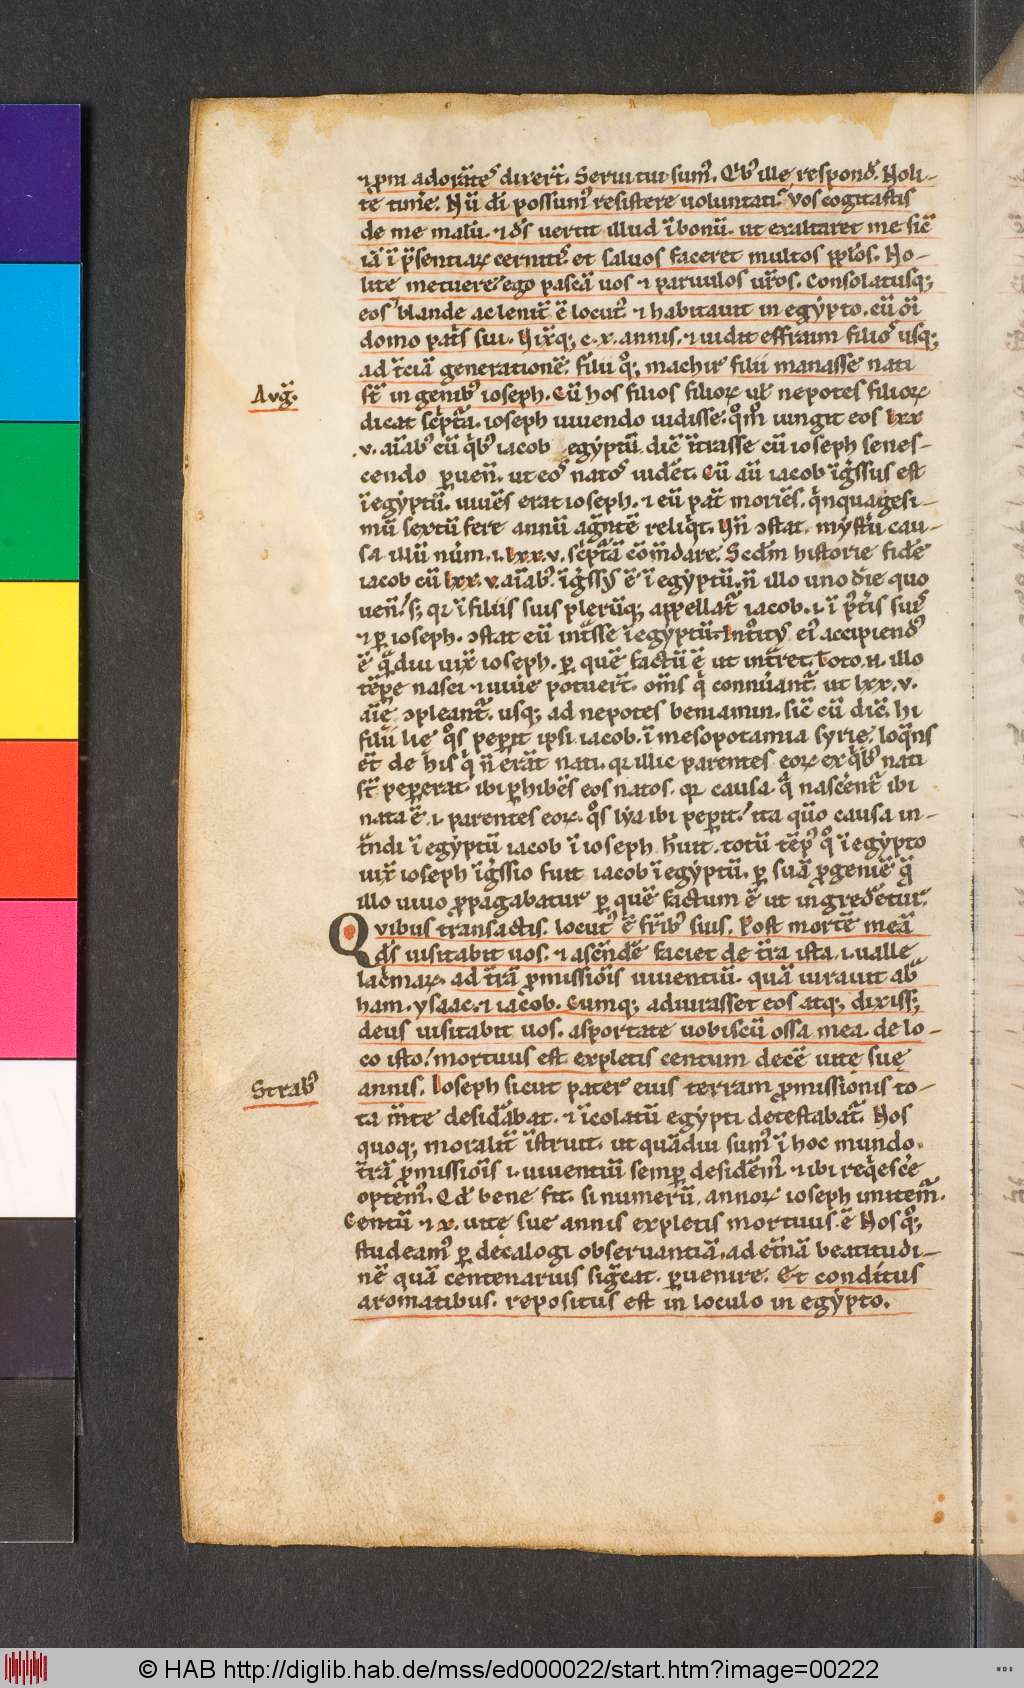 ⁊ p̱ni adorātes dixer̄t. Serui tui sumꝰ. Qͥbꝰ ille respond̄. Noli-
te tim̄e. Nū d̄i possumꝰ resistere uoluntati. Vos cogitastis
de me malū. ⁊ d̄s uertit illud ī bonū. ut exaltaret me sic̄
iā ī p̄sentiaꝝ cernitiˢ. et saluos faceret multos ppl̄os. No-
lite metuere. ego pascā uos ⁊ paruulos ur̄os. Consolatusqꝫ
eos blande ac lenit̄ ē locutꝰ. ⁊ habitauit in egypto. cū oī
domo pat̄s sui. Vixitqꝫ c. x. annis. ⁊ uidit effraim filioˢ usqꝫ
ad t̄ciā generationē. filii qͦqꝫ machir filii manasse nati
Avḡ.
st̄ in genibꝰ ioseph. Cū hos filios filioꝝ ul̄ nepotes filioꝝ
dicat sc̄pta. ioseph uiuendo uidisse. qͦm̄ iungit eos lxx
.v. aīabꝰ cū qͥbꝰ iacob egyptū dic̄ īt̄asse cū ioseph senes-
cendo puen̄. ut eoˢ natoˢ uid̄et. Cū aū iacob īg̊ssus est
ī egyptū. uiuēs erat ioseph. ⁊ eū pat̄ moriēs. qͥnquagesi-
mū sextū fere annū agntē reliqͥt. Vn̄ ꝯstat. mystīi cau-
sa illū num̄. i. lxx.v. sc̄ptā cōm̄dare. Scdm̄ historie fidē
iacob cū lxx.v. aīabꝰ īg̊ssꝰ ē ī egyptū. n̄ illo uno die quo
uen̄. sꝫ qꝛ ī filiis suis pleruqꝫ appellat̄ iacob. i. ī p̄tis suiˢ
⁊ p ioseph. ꝯstat eū int̄sse ī egyptū. Int̊ityˢ eiꝰ accipiendꝰ
ē qͣdiu uix̄ ioseph. p quē factū ē ut int̄ret. Toto .n. illo
tēpe nasci ⁊ uiue potuer̄t. om̄s qͥ connuant̄. ut lxx.v.
aīe ꝯpleant̄. usqꝫ ad nepotes beniamin. sic̄ cū dic̄. hi
filii lie qͦs pepit ipsi iacob. ī mesopotamia syrie. loqͥns
et̄ de his qͥ n̄ erāt nati. qꝛ illic parentes eoꝝ ex qͥbꝰ nati
st̄ pepat. ibi phibēs eos natos. qꝛ causa qͣ nascent̄ ibi
nata ē. i. parentes eoꝝ. qͦs lya ibi pepit. ita qm̄ causa in-
t̄ndi ī egyptū iacob ī ioseph fuit. totū tēpꝰ qͦ ī egypto
uix̄ ioseph īg̊ssio fuit iacob ī egyptū. p suā pgeniē q̄
illo uiuo ppagabatur p quē factum ē ut ingrederetur.
Qvibus transactis. locutꝰ ē fr̄ibꝰ suis. Post mortē meā
d̄s uisitabit uos. ⁊ ascēdē faciet de t̄ra ista. i. ualle
lac̊maꝝ. ad t̄rā pmissiōis uiuentiū. quā iurauit ab̄-
ham. ysaac. ⁊ iacob. Cumqꝫ adiurasset eos atqꝫ dixissꝫ
deus uisitabit uos. asportate uobiscū ossa mea. de lo-
co isto. mortuus est expletis centum decē uite suę
Strabꝰ
annis. Ioseph sicut pater eius terram pmissionis to-
ta m̄te desid̄abat. ⁊ īcolatū egypti detestabat̄. Nos
quoqꝫ moralit̄ īstruit. ut quādiu sumꝰ ī hoc mundo.
t̄rā pmissiōis i. uiuentiū semp desidemꝰ ⁊ ibi reqͥesc̄e
optemꝰ. Qd̄ bene fit. si numerū annoꝝ ioseph imitem̄.
Centū ⁊ .x. uite sue annis expletis mortuus ē Nos qͦqꝫ
studeamꝰ p decalogi obseruantiā. ad et̄nā beatitudi-
nē quā centenarius sigͥcat. puenire. Et conditus
aromatibus. repositus est in loculo in egypto.
© HAB http://diglib.hab.de/mss/ed000022/start.htm?image=00222